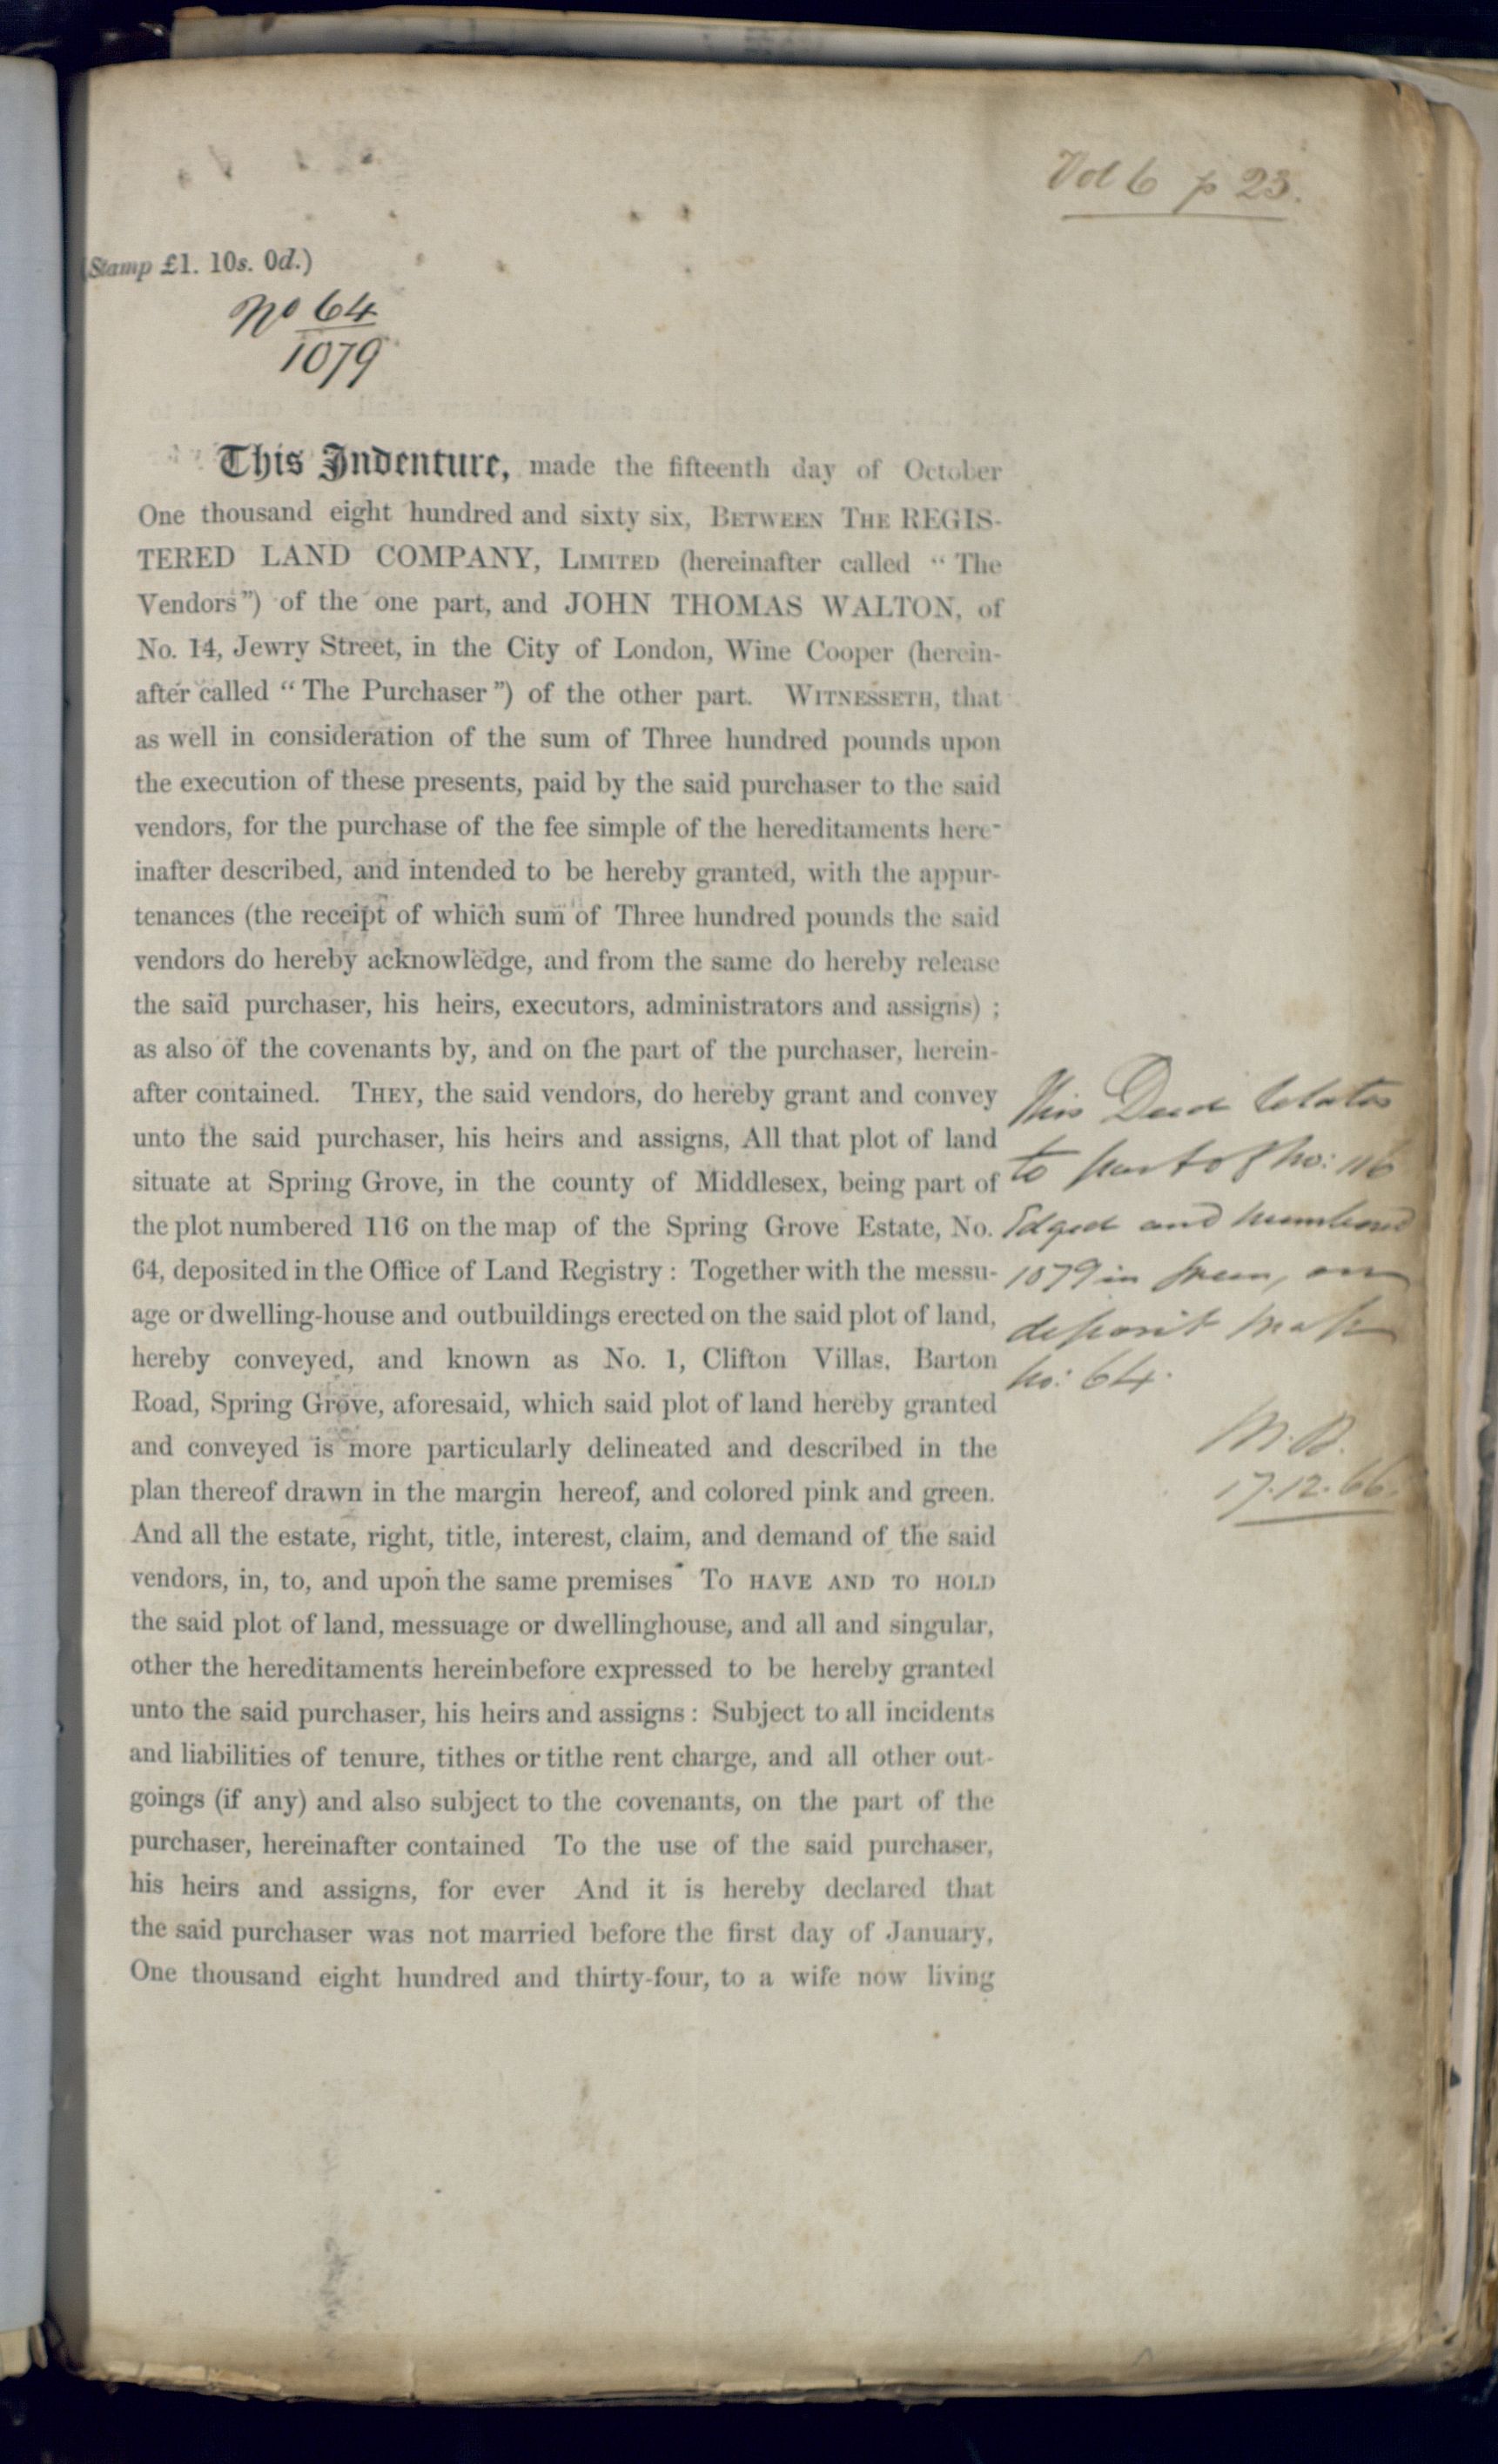 Vol 6 p 23.
(Stamp £1. 10s. 0d.)
No 64
1079
This Indenture, made the fifteenth day of October
One thousand eight hundred and sixty six, BETWEEN THE REGIS-
TERED LAND COMPANY, LIMITED (hereinafter called “ The
Vendors”) of the one part, and JOHN THOMAS WALTON, of
No. 14, Jewry Street, in the City of London, Wine Cooper (herein-
after called “ The Purchaser ”) of the other part. WITNESSETH, that
as well in consideration of the sum of Three hundred pounds upon
the execution of these presents, paid by the said purchaser to the said
vendors, for the purchase of the fee simple of the hereditaments here-
inafter described, and intended to be hereby granted, with the appur-
tenances (the receipt of which sum of Three hundred pounds the said
vendors do hereby acknowledge, and from the same do hereby release
the said purchaser, his heirs, executors, administrators and assigns) ;
as also of the covenants by, and on the part of the purchaser, herein-
after contained. THEY, the said vendors, do hereby grant and convey
unto the said purchaser, his heirs and assigns, All that plot of land
situate at Spring Grove, in the county of Middlesex, being part of
the plot numbered 116 on the map of the Spring Grove Estate, No.
64, deposited in the Office of Land Registry : Together with the messu-
age or dwelling-house and outbuildings erected on the said plot of land,
hereby conveyed, and known as No. 1, Clifton Villas, Barton
Road, Spring Grove, aforesaid, which said plot of land hereby granted
and conveyed is more particularly delineated and described in the
plan thereof drawn in the margin hereof, and colored pink and green.
And all the estate, right, title, interest, claim, and demand of the said
vendors, in, to, and upon the same premises To HAVE AND TO HOLD
the said plot of land, messuage or dwellinghouse, and all and singular,
other the hereditaments hereinbefore expressed to be hereby granted
unto the said purchaser, his heirs and assigns : Subject to all incidents
and liabilities of tenure, tithes or tithe rent charge, and all other out-
goings (if any) and also subject to the covenants, on the part of the
purchaser, hereinafter contained To the use of the said purchaser,
his heirs and assigns, for ever And it is hereby declared that
the said purchaser was not married before the first day of January,
One thousand eight hundred and thirty-four, to a wife now living
This Deed relates
to part of No: 116
Edged and numbered
1079 in Green, on
deposit Map
No: 64.
M.B.
17.12.66.